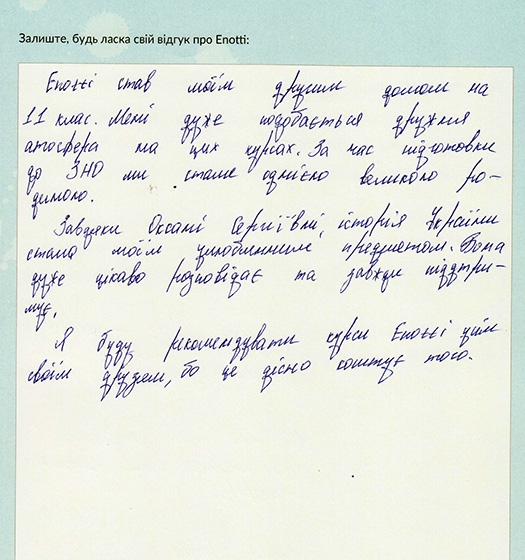 Залиште, будь ласка свій відгук про Enotti:
Enotti став моїм другим домом на
11 клас. Мені дуже подобається дружня
атосфера на цих курсах. За час підготовки
до ЗНО ми стали однією великою ро-
диною.
Завдяки Оксані Сергіївні, історія України
стала моїм улюбленним предметом. Вона
дуже цікаво розповідає та завжди піддтри-
мує.
Я буду рекомендувати курси Enotti усім
своїм друзям, бо це дісно коштує того.